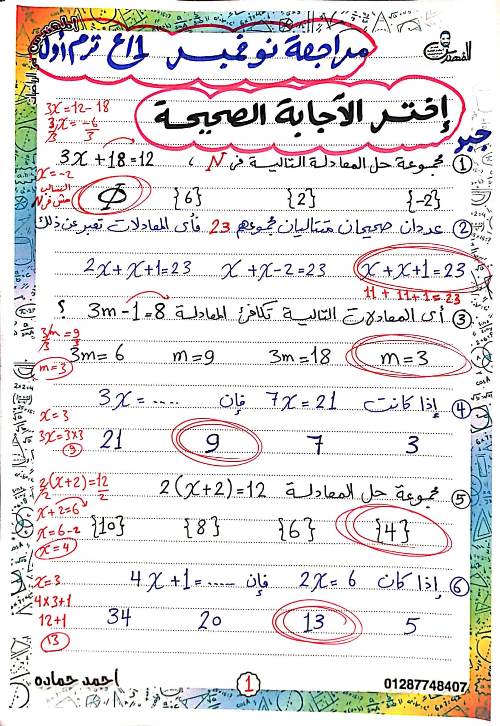 مراجعة نوفمبر 1/ع ترم أول
المهندس
إختر الإجابة الصحيحة
جبر
3x = 12 - 18
3x/3 = -6/3
x = -2
السالب
مش فى N
① مجموعة حل المعادلة التالية فى N، 3x + 18 = 12
{-2} {2} {6} Φ
② عددان صحيحان متتاليان مجموعهم 23 فأى المعادلات تعبر عن ذلك
x + x + 1 = 23 x + x - 2 = 23 2x + x + 1 = 23
11 + 11 + 1 = 23
③ أى المعادلات التالية تكافئ المعادلة 3m - 1 = 8 ؟
3m/3 = 9/3
m = 3
m = 3 3m = 18 m = 9 3m = 6
④ إذا كانت 7x = 21 فإن 3x = ....
x = 3
3x = 3x3
9
3 7 9 21
⑤ مجموعة حل المعادلة 2(x+2) = 12
2(x+2)/2 = 12/2
x + 2 = 6
x = 6 - 2
x = 4
{4} {6} {8} {10}
⑥ إذا كان 2x = 6 فإن 4x + 1 = .....
x = 3
4x3+1
12+1
13
5 13 20 34
احمد حماده
1
01287748407